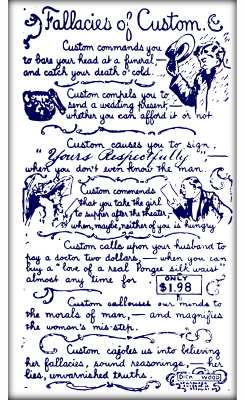 Fallacies of Custom.
Custom commands you
to bare your head at a funeral —
and catch your death o' cold.
Custom compels you to
send a wedding present, —
whether you can afford it or not
Custom causes you to sign,
"Yours Respectfully" —
when you don't even know the man.
Custom commands
that you take the girl
to supper after the theater, —
when, maybe, neither of you is hungry
Custom calls upon your husband to
pay a doctor two dollars, — when you can
buy a "love of a real Pongee silk waist"
almost any time for
ONLY
$1.98
Custom callouses our minds to
the morals of man, — and magnifies
the woman's mis-step.
Custom cajoles us into believing
her fallacies, sound reasonings, — her
lies, unvarnished truths.
DICK WOOD